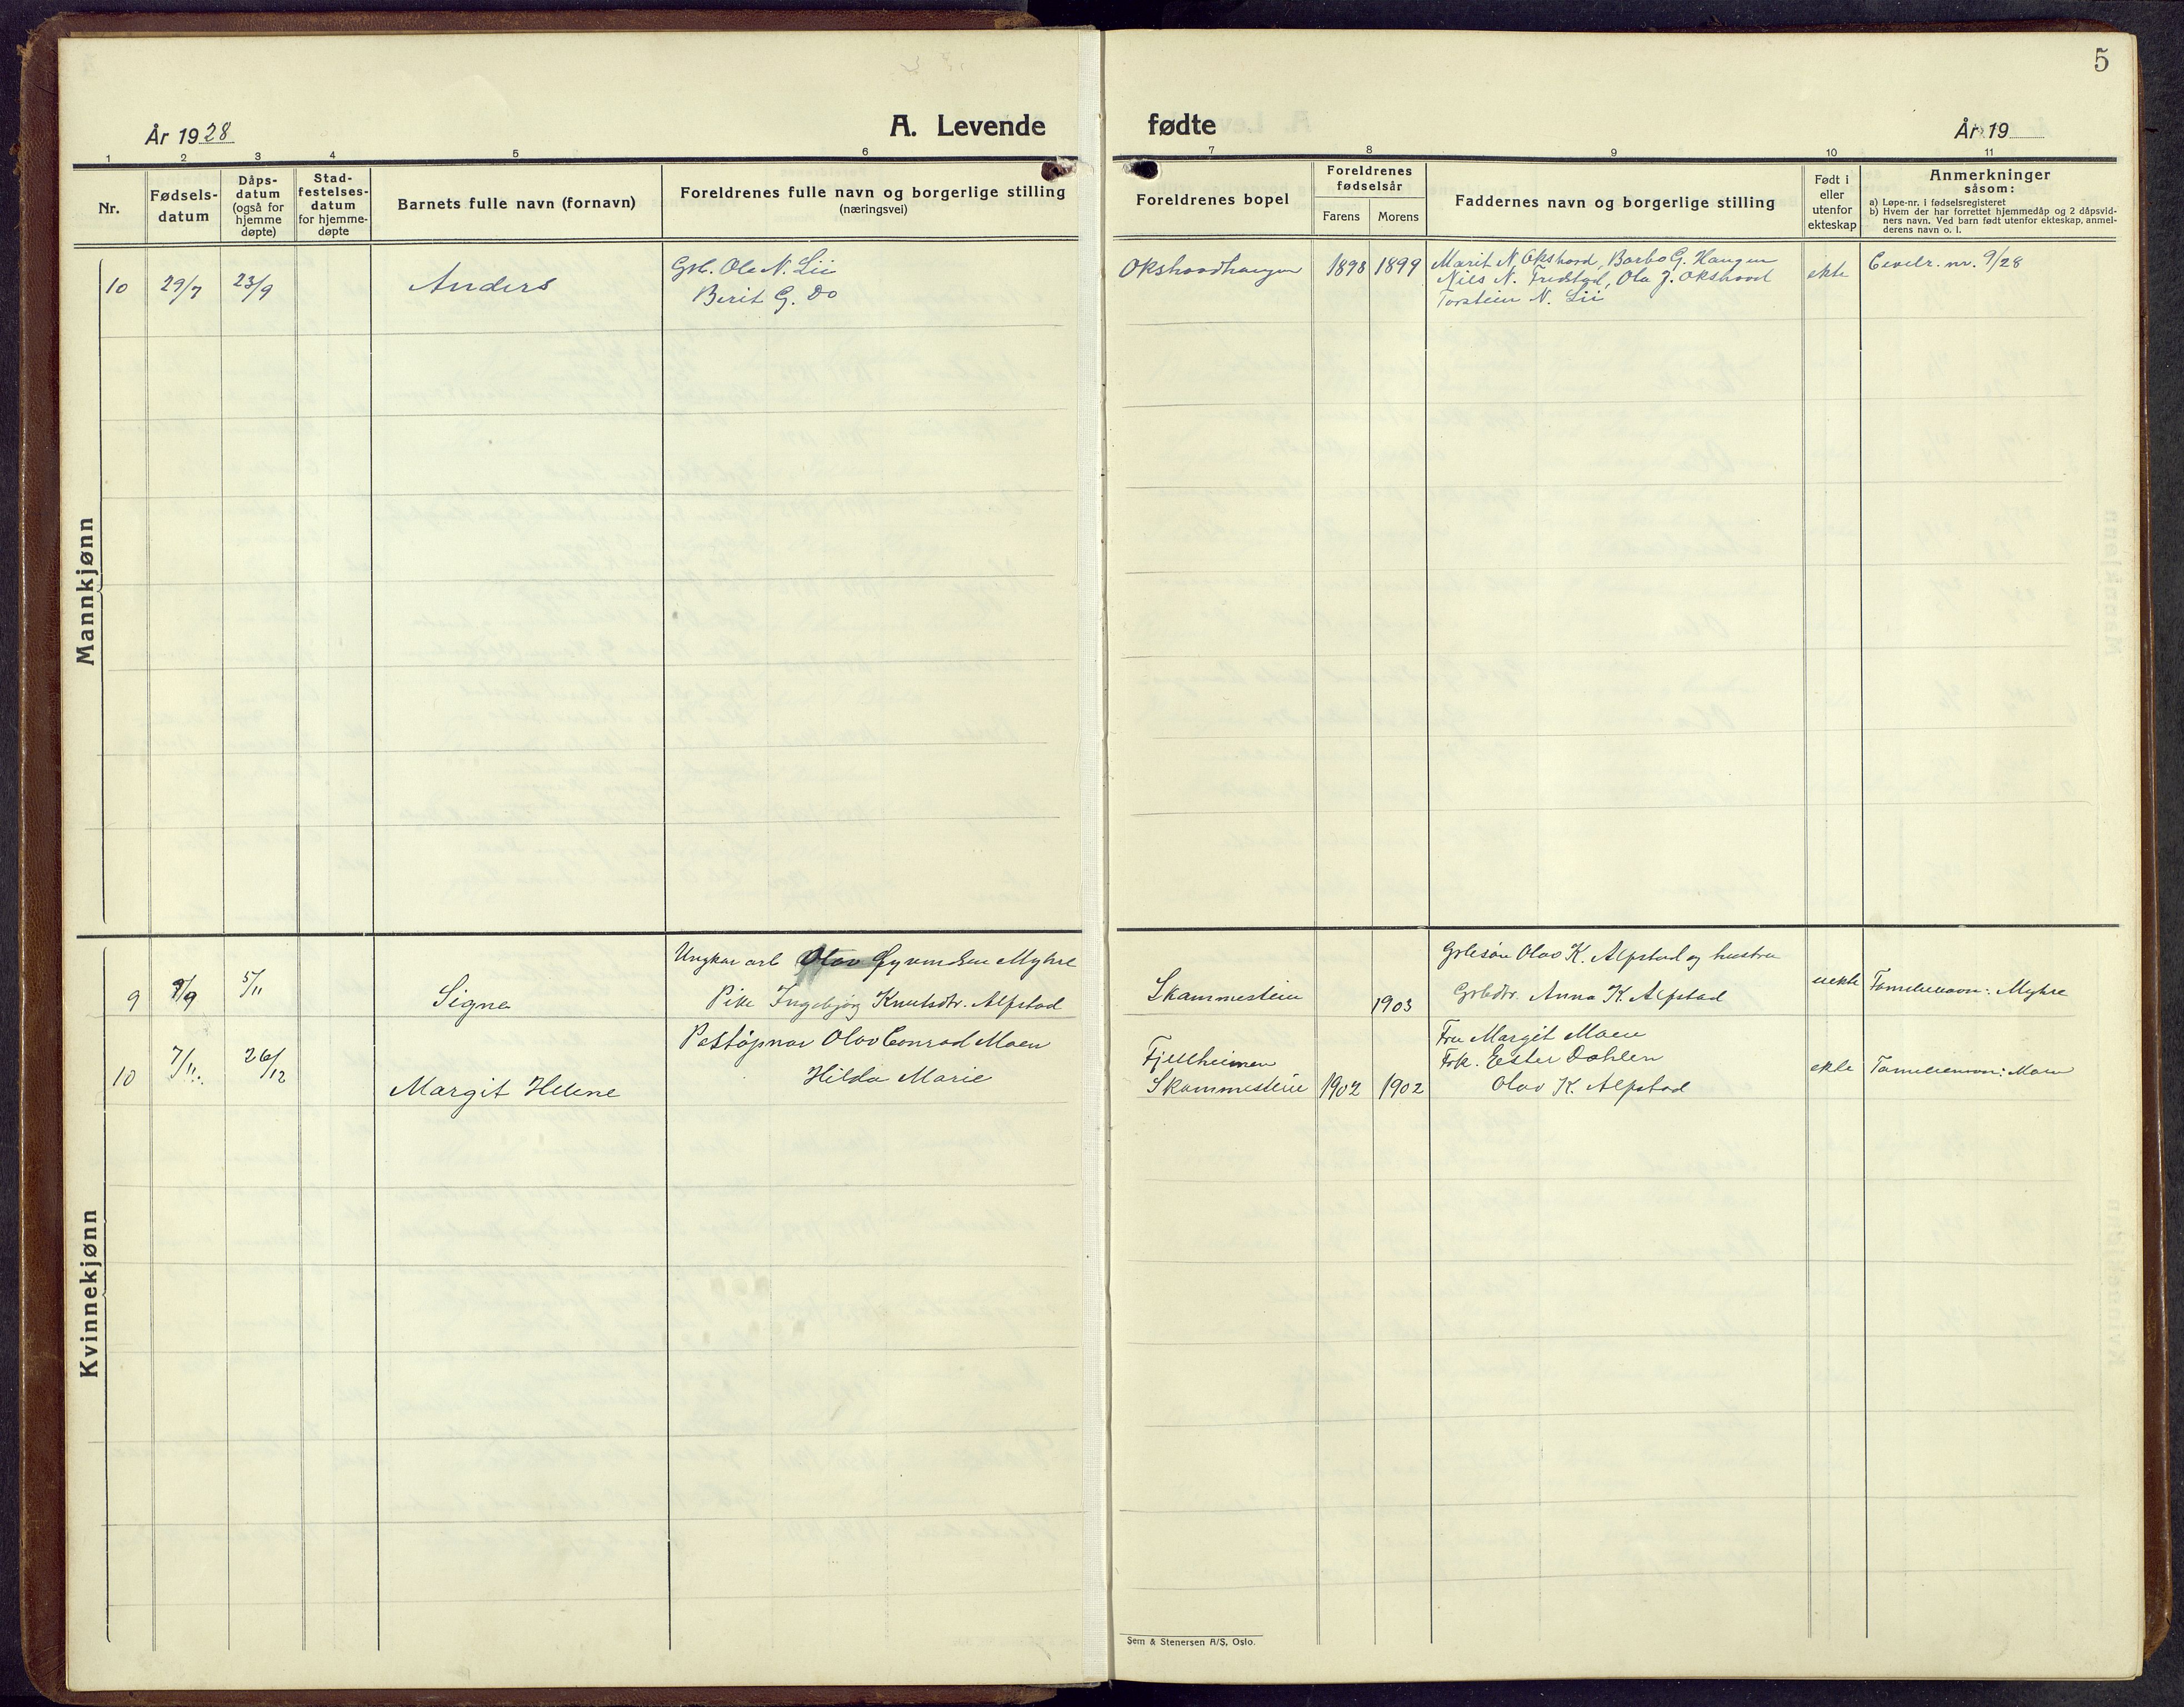 5
År 1928
A. Levende fødte
År 19
1 2 3 4 5 6 7 8 9 10 11
Nr.
Fødsels-
datum
Dåps-
datum
(også for
hjemme
døpte)
Stad-
festelses-
datum
for hjemme-
døpte
Barnets fulle navn (fornavn)
Foreldrenes fulle navn og borgerlige stilling
(næringsvei)
Foreldrenes bopel
Foreldrenes
fødselsår
Farens
Morens
Faddernes navn og borgerlige stilling
Født i
eller
utenfor
ekteskap
Anmerkninger
såsom:
a) Løpe-nr. i fødselsregisteret
b) Hvem der har forrettet hjemmedåp og 2 dåpsvid-
ners navn. Ved barn født utenfor ekteskap, anmel-
derens navn o. l.
Mannkjønn
10
29/7
23/9
Anders
Grb. Ole N. Lii
Berit G. Do
Okshovdhaugen
1898
1899
Marit N. Okshovd, Barbo G. Haugen
Nils N. Fredstad, Ola J. Okshovd
Torstein N. Lii
ekte
Cevilr. nr. 9/28
Kvinnekjønn
9
9/9
5/11
Signe
Ungkar arb Olav Øyvindsen Myhre
Pike Ingebjørg Knutsdtr. Alfstad
Skammestein
1903
Grbesøn Olav K. Alfstad og hustru
Grbdtr. Anna K. Alfstad
uekte
Familienavn: Myhre
10
7/11
26/12
Margit Helene
Poståpnar Olav Conrad Moen
Hilda Marie
Fjellheimen
Skammestein
1902
1902
Fru Margit Moen
Frk. Ester Dahlen
Olav K. Alfstad
ekte
Familienavn: Moen
Sem & Stenersen A/S, Oslo.